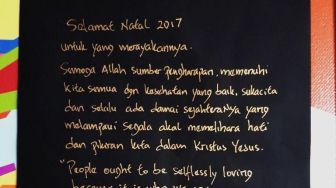 Selamat Natal 2017
untuk yang merayakannya.
Semoga Allah sumber pengharapan, memenuhi
kita semua dgn kesehatan yang baik, sukacita
dan selalu ada damai sejahteraNya yang
melampaui segala akal memelihara hati
dan pikiran kita dalam Kristus Yesus.
"People ought to be selflessly loving
because it is who we are